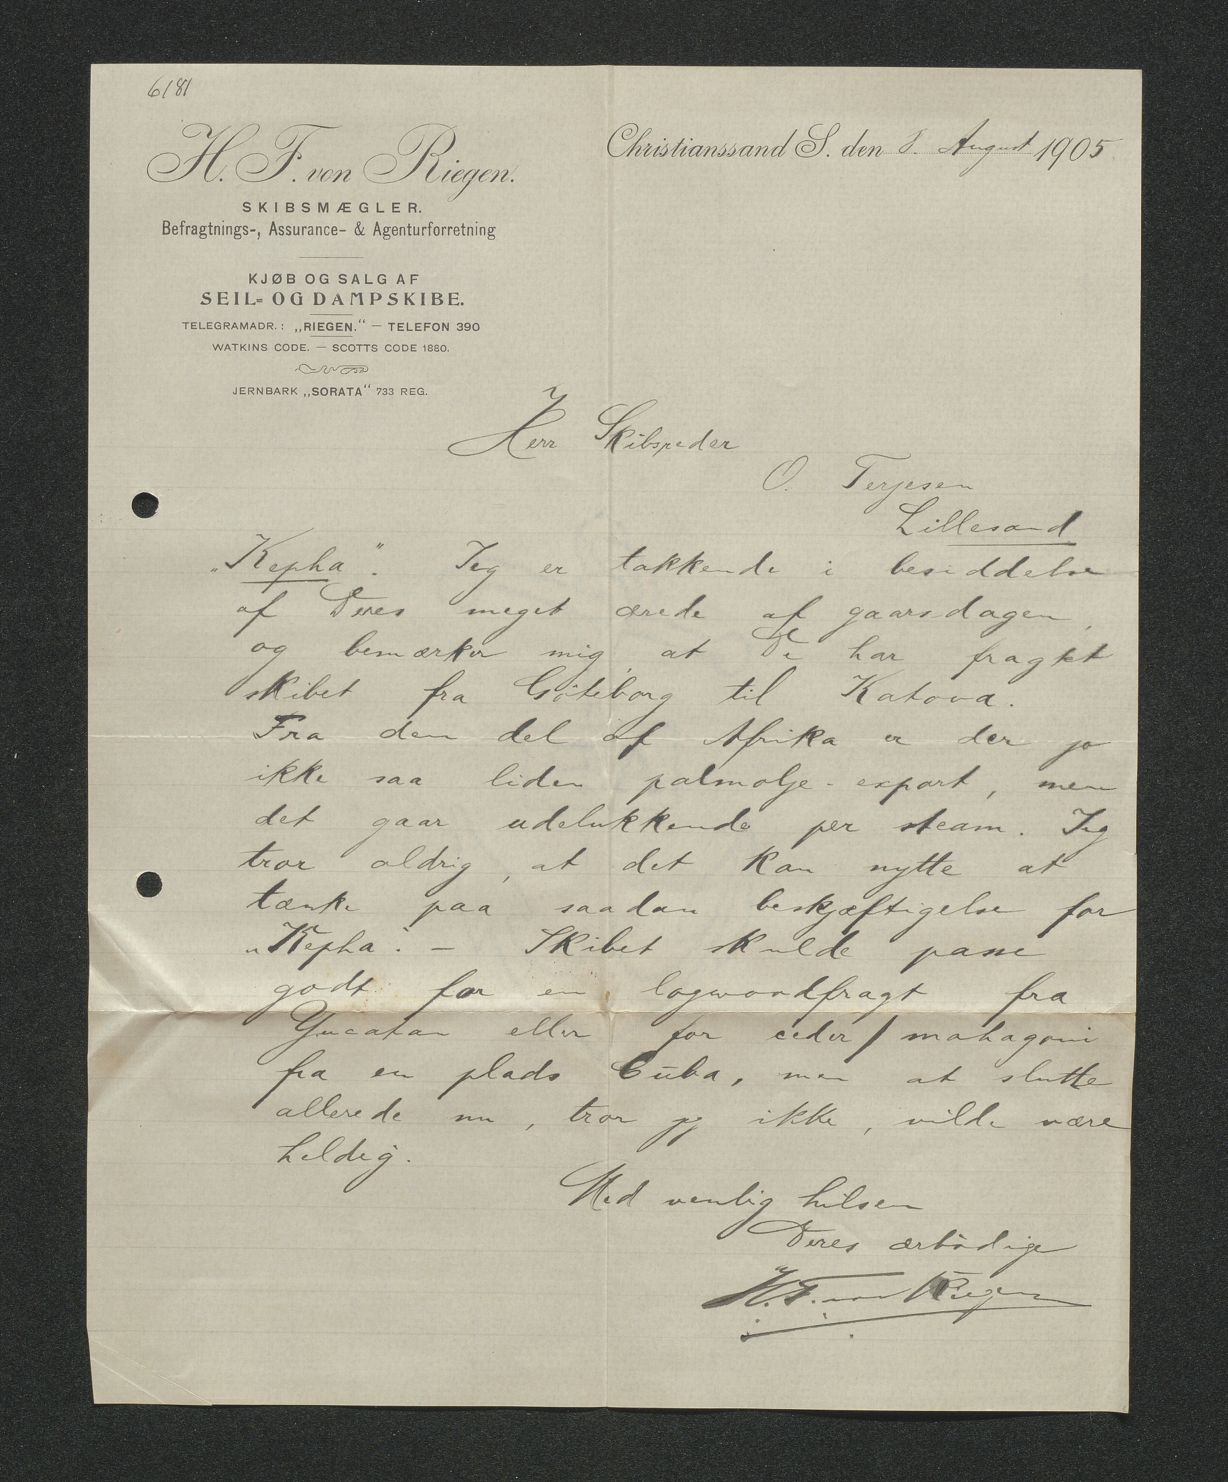 6181
H. F. von Riegen.
SKIBSMÆGLER.
Befragtnings-, Assurance- & Agenturforretning
KJØB OG SALG AF
SEIL- OG DAMPSKIBE.
TELEGRAMADR.: „RIEGEN." — TELEFON 390
WATKINS CODE. — SCOTTS CODE 1880.
JERNBARK „SORATA" 733 REG.
Christianssand S. den 8. August 1905
Herr Skibsreder
O. Terjesen
Lillesand
„Kepha". Jeg er takkende i besiddelse
af Deres meget ærede af gaarsdagen,
og bemærker mig, at De har fragtet
skibet fra Göteborg til Kotova.
Fra den del af Afrika er der jo
ikke saa liden palmolje-export, men
det gaar udelukkende per steam. Jeg
tror aldrig, at det kan nytte at
tænke paa saadan beskjæftigelse for
„Kepha". — Skibet skulde passe
godt for en logwoodfragt fra
Yucatan eller for ceder/mahagoni
fra en plads Cuba, men at slutte
allerede nu, tror jeg ikke, vilde være
heldig.
Med venlig hilsen
Deres ærbødige
H. F. von Riegen